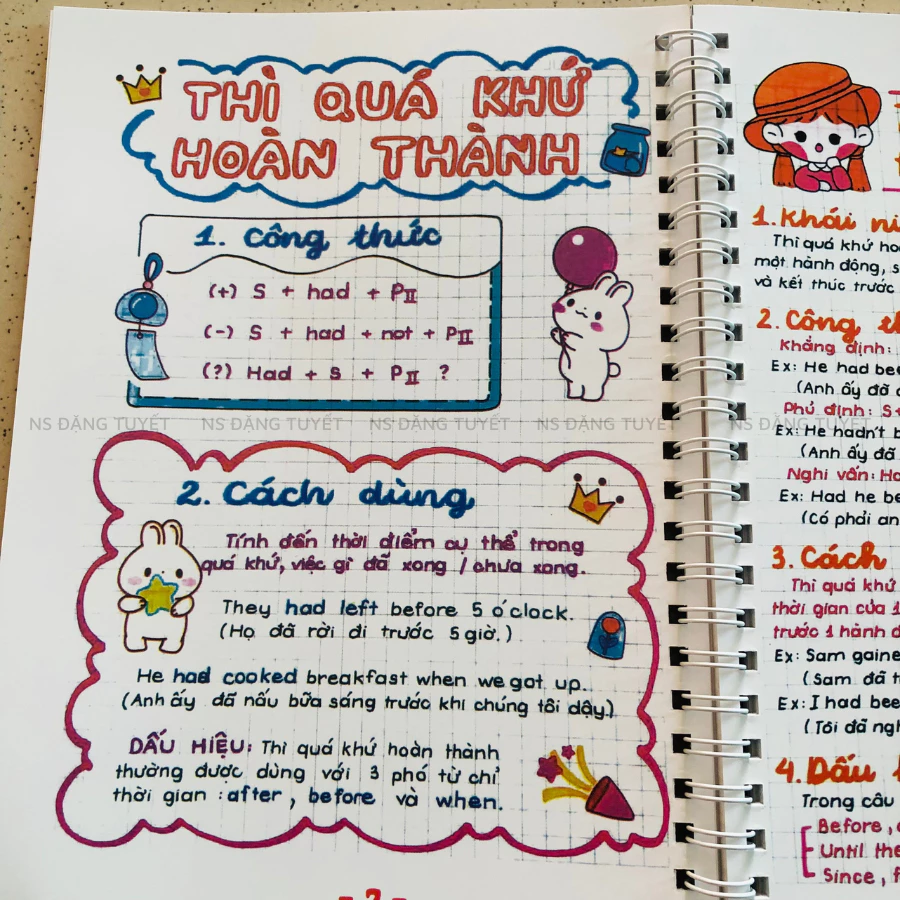 THÌ QUÁ KHỨ
HOÀN THÀNH
1. Công thức
(+) S + had + PII
(-) S + had + not + PII
(?) Had + S + PII ?
NS ĐẶNG TUYẾT NS ĐẶNG TUYẾT NS ĐẶNG TUYẾT NS ĐẶNG TUYẾT NS ĐẶNG TUYẾT
2. Cách dùng
Tính đến thời điểm cụ thể trong
quá khứ, việc gì đã xong / chưa xong.
They had left before 5 o'clock.
(Họ đã rời đi trước 5 giờ.)
He had cooked breakfast when we got up.
(Anh ấy đã nấu bữa sáng trước khi chúng tôi dậy)
DẤU HIỆU: Thì quá khứ hoàn thành
thường được dùng với 3 phó từ chỉ
thời gian : after, before và when.
- 2 -
1. Khái
Thì quá khứ
một hành động,
và kết thúc trước
2. Công
Khẳng định:
Ex: He had
(Anh ấy đã
Phủ định: S+
Ex: He hadn't
(Anh ấy đã
Nghi vấn:
Ex: Had he
(Có phải
3. Cách
Thì quá khứ
thời gian của 1
trước 1 hành
Ex: Sam
(Sam đã
Ex: I had
(Tôi đã
4. Dấu
Trong câu
Before,
Until
Since,